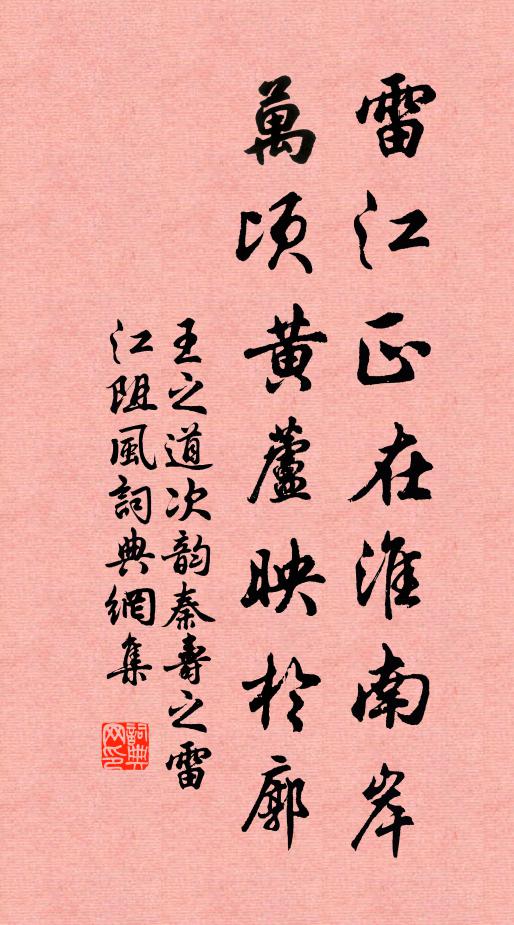 雷江正在淮南岸
萬頃黃蘆映於廓
王之道次韵秦壽之雷
江阻風詞典網集
詞典
网印